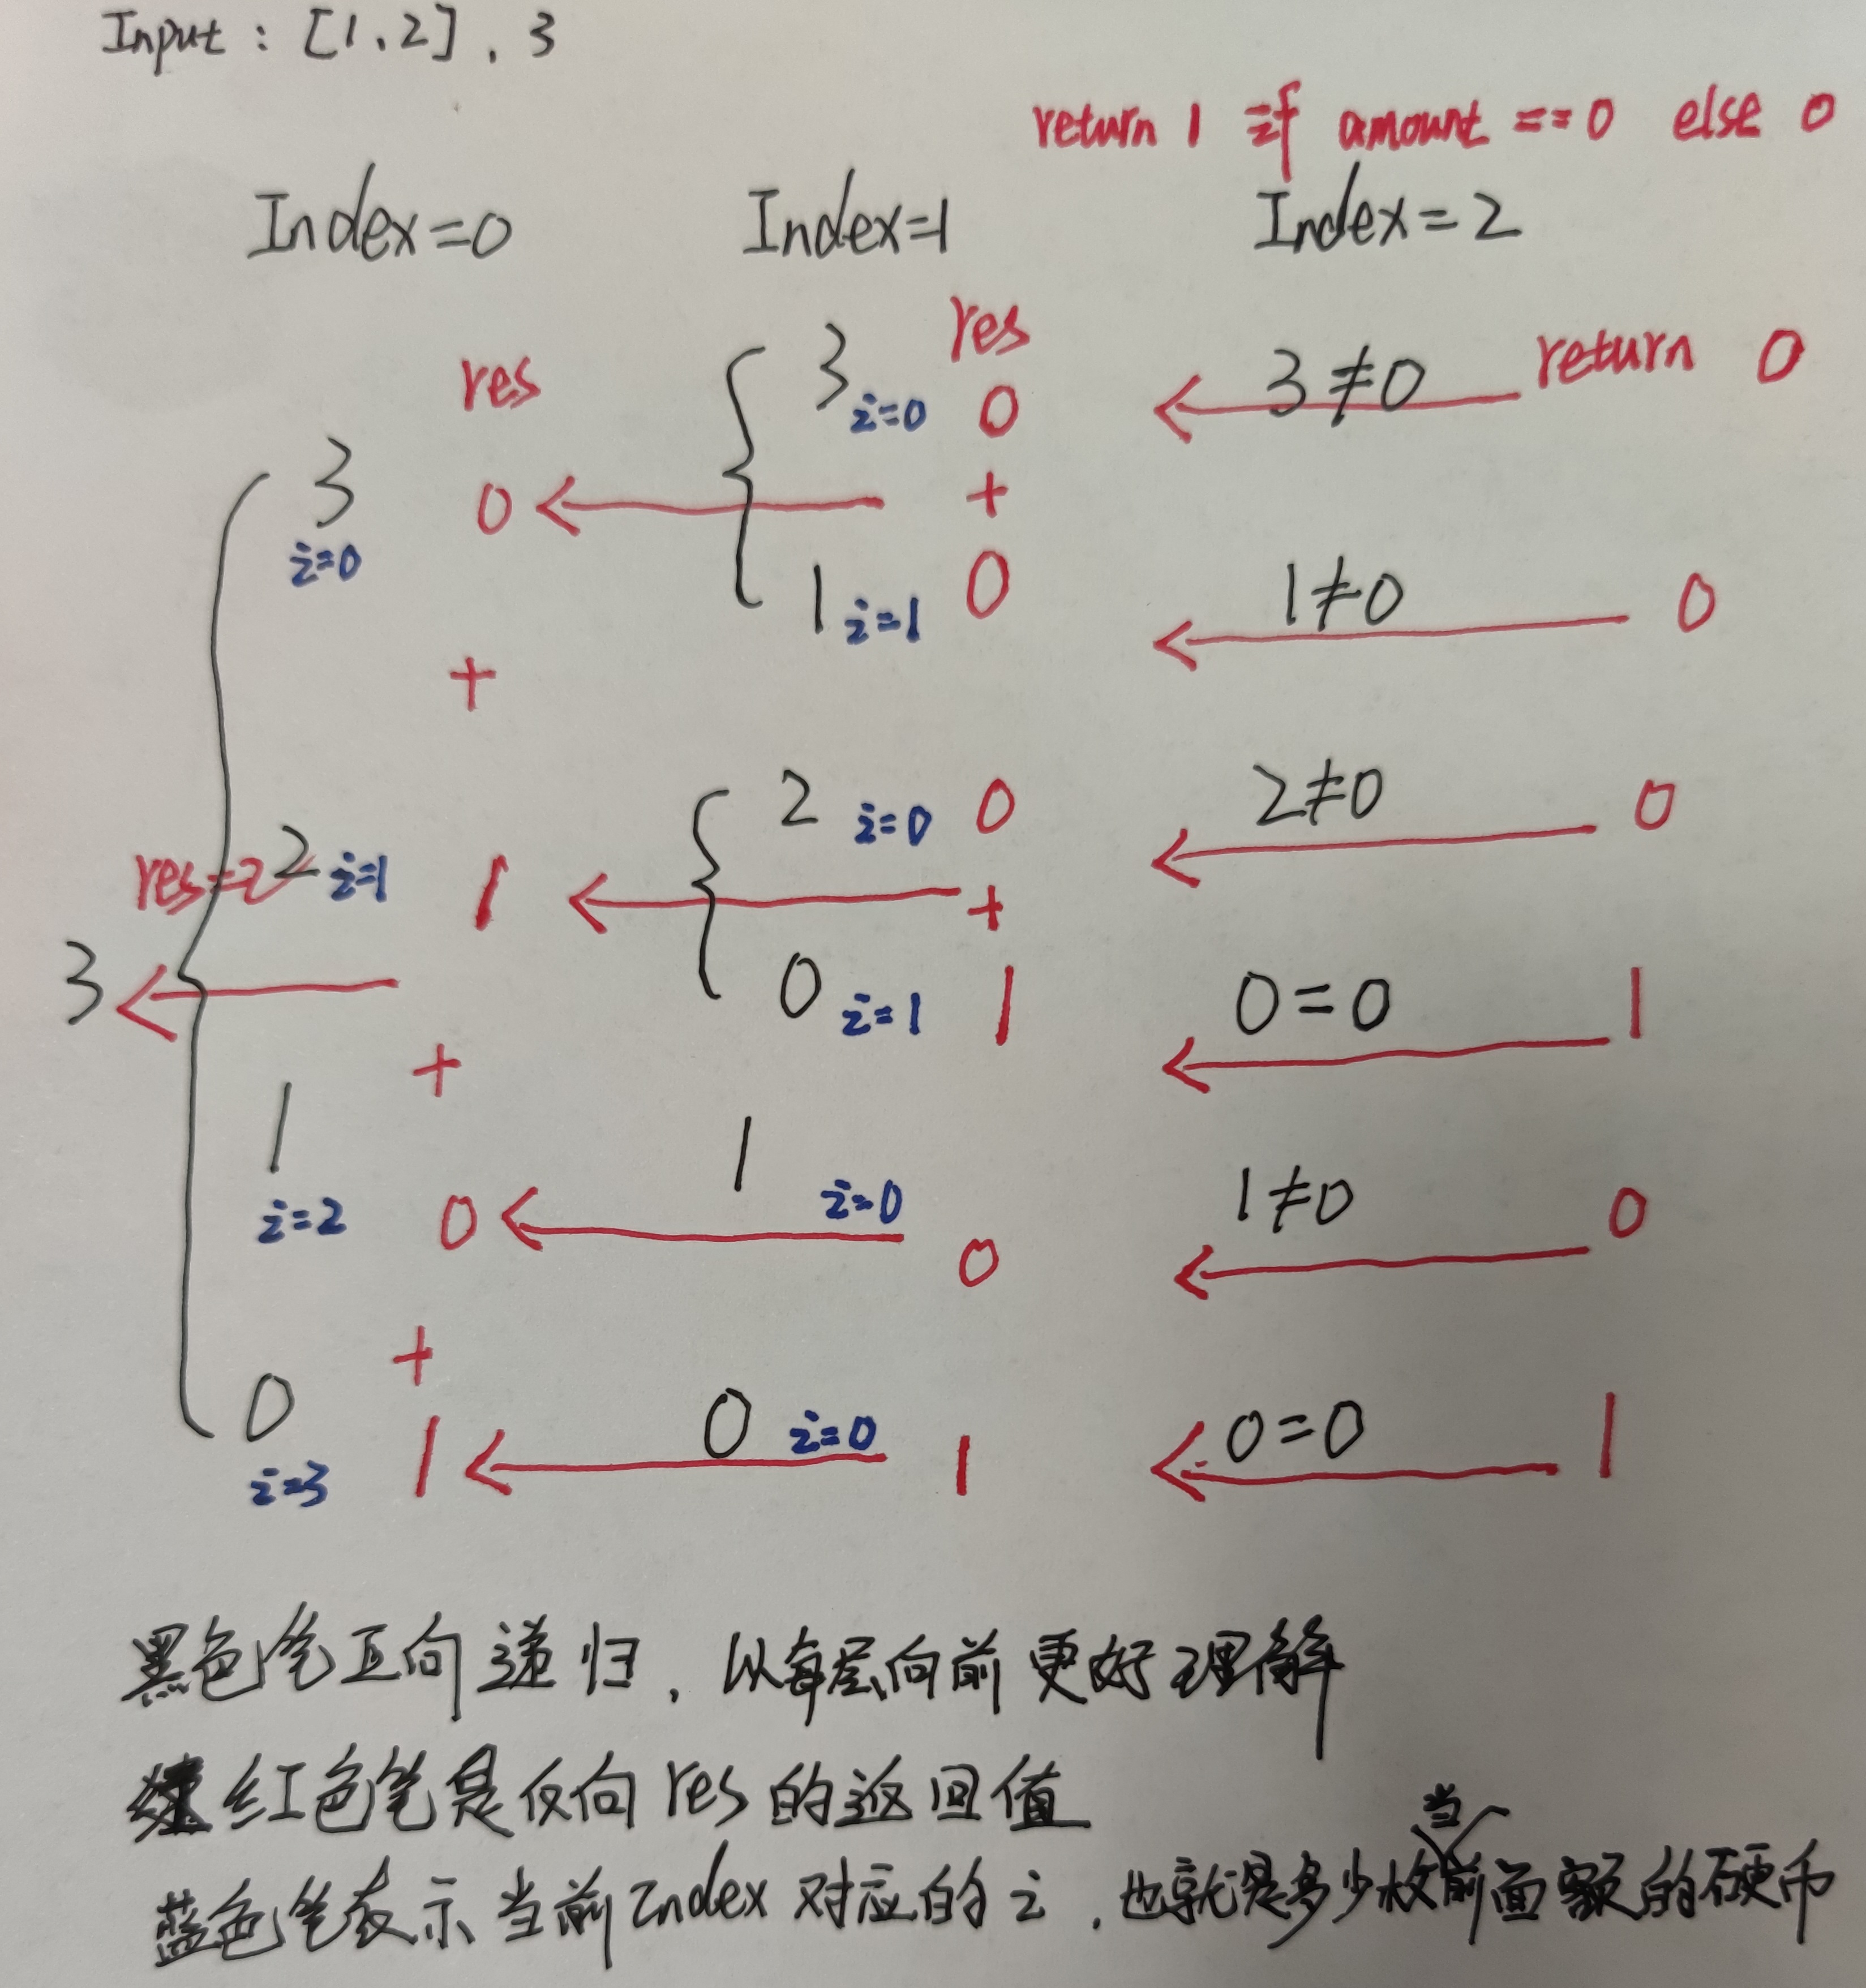 Input : [1,2] , 3
return 1 if amount ==0 else 0
Index=0 Index=1 Index=2
res
3 i=0 0 3≠0 return 0
res
3 0 +
i=0
1 i=1 0 1≠0 0
+
2 i=0 0 2≠0 0
res=2 2 i=1 1 +
3
0 i=1 1 0=0 1
+
1 1 i=0 1≠0 0
i=2 0 0
+
0 0 i=0 0=0 1
i=3 1 1
黑色笔正向递归，以每层向前更好理解
红色笔是反向res的返回值
蓝色笔表示当前Index对应的i，也就是多少枚当前面额的硬币